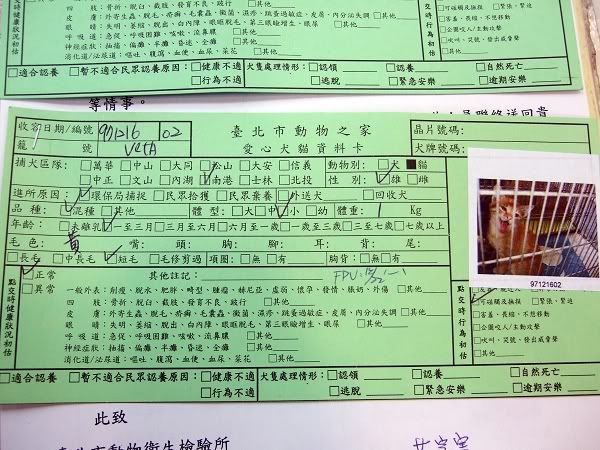 膚:□外寄生蟲、脫毛、疥癬、毛囊蟲、黴菌、濕疹、跳蚤過敏症、皮屑、內分泌失調□其他
眼 睛:□失明、萎縮、脫出、白內障、眼眶脫毛、第三眼瞼增生、眼屎 □其他
呼 吸 道:□急促、呼吸困難、咳嗽、流鼻膿 □其他
神經症狀:□抽搐、偏癱、半癱、昏迷、全癱 □其他
消化道/泌尿道:□嘔吐、腹瀉、血便、血尿、菜花 □其他
點交時健康狀況初估
□可碰觸及撫摸 □緊張、緊迫
□害羞、長吠、不想移動
□公園咬人/主動攻擊
□吠叫、哭號、發出威脅聲
□其他
□適合認養 □暫不適合民眾認養原因:□健康不適 □行為不適
犬隻處理情形:□認領 □認養 □自然死亡
□逃脫 □緊急安樂 □逾期安樂
等情事。
收容日期/編號 971216 02
籠 號
臺北市動物之家
愛心犬貓資料卡
晶片號碼:
犬牌號碼:
捕犬區隊:□萬華□中山□大同□松山□大安□信義 動物別:□犬■貓
□中正□文山□內湖□南港□士林□北投 性 別:□雄□雌
進所原因:□環保局捕捉□民眾拾獲□民眾棄養□外送犬 □回收犬
品 種:□混種□其他 體 型:□大□中□小□幼 體重: 1 Kg
年齡:□未離乳□一至三月□三月至六月□六月至一歲□一歲至三歲□三歲至七歲□七歲以上
毛色: 黃 嘴: 頭: 胸: 腳: 耳: 背: 尾:
□長毛□中長毛□短毛□毛修剪過 項圈:□無□有 胸背:□無□有
97121602
點交時健康狀況初估
□正常
□異常
其他註記:
一般外表:□削瘦、脫水、肥胖、畸型、腫瘤、赫尼亞、虛弱、懷孕、發情、脹奶、外傷 □其他
四 肢:□骨折、脫臼、截肢、發育不良、跛行 □其他
皮 膚:□外寄生蟲、脫毛、疥癬、毛囊蟲、黴菌、濕疹、跳蚤過敏症、皮屑、內分泌失調 □其他
眼 睛:□失明、萎縮、脫出、白內障、眼眶脫毛、第三眼瞼增生、眼屎 □其他
呼 吸 道:□急促、呼吸困難、咳嗽、流鼻膿 □其他
神經症狀:□抽搐、偏癱、半癱、昏迷、全癱 □其他
消化道/泌尿道:□嘔吐、腹瀉、血便、血尿、菜花 □其他
點交時行為初估
□可碰觸及撫摸 □緊張、緊迫
□公園咬人/主動攻擊
□吠叫、哭號、發出威脅聲
□其他
□適合認養 □暫不適合民眾認養原因:□健康不適 □行為不適
犬隻處理情形:□認領 □認養 □自然死亡
□逃脫 □緊急安樂 □逾期安樂
此致
臺北市動物衛生檢驗所